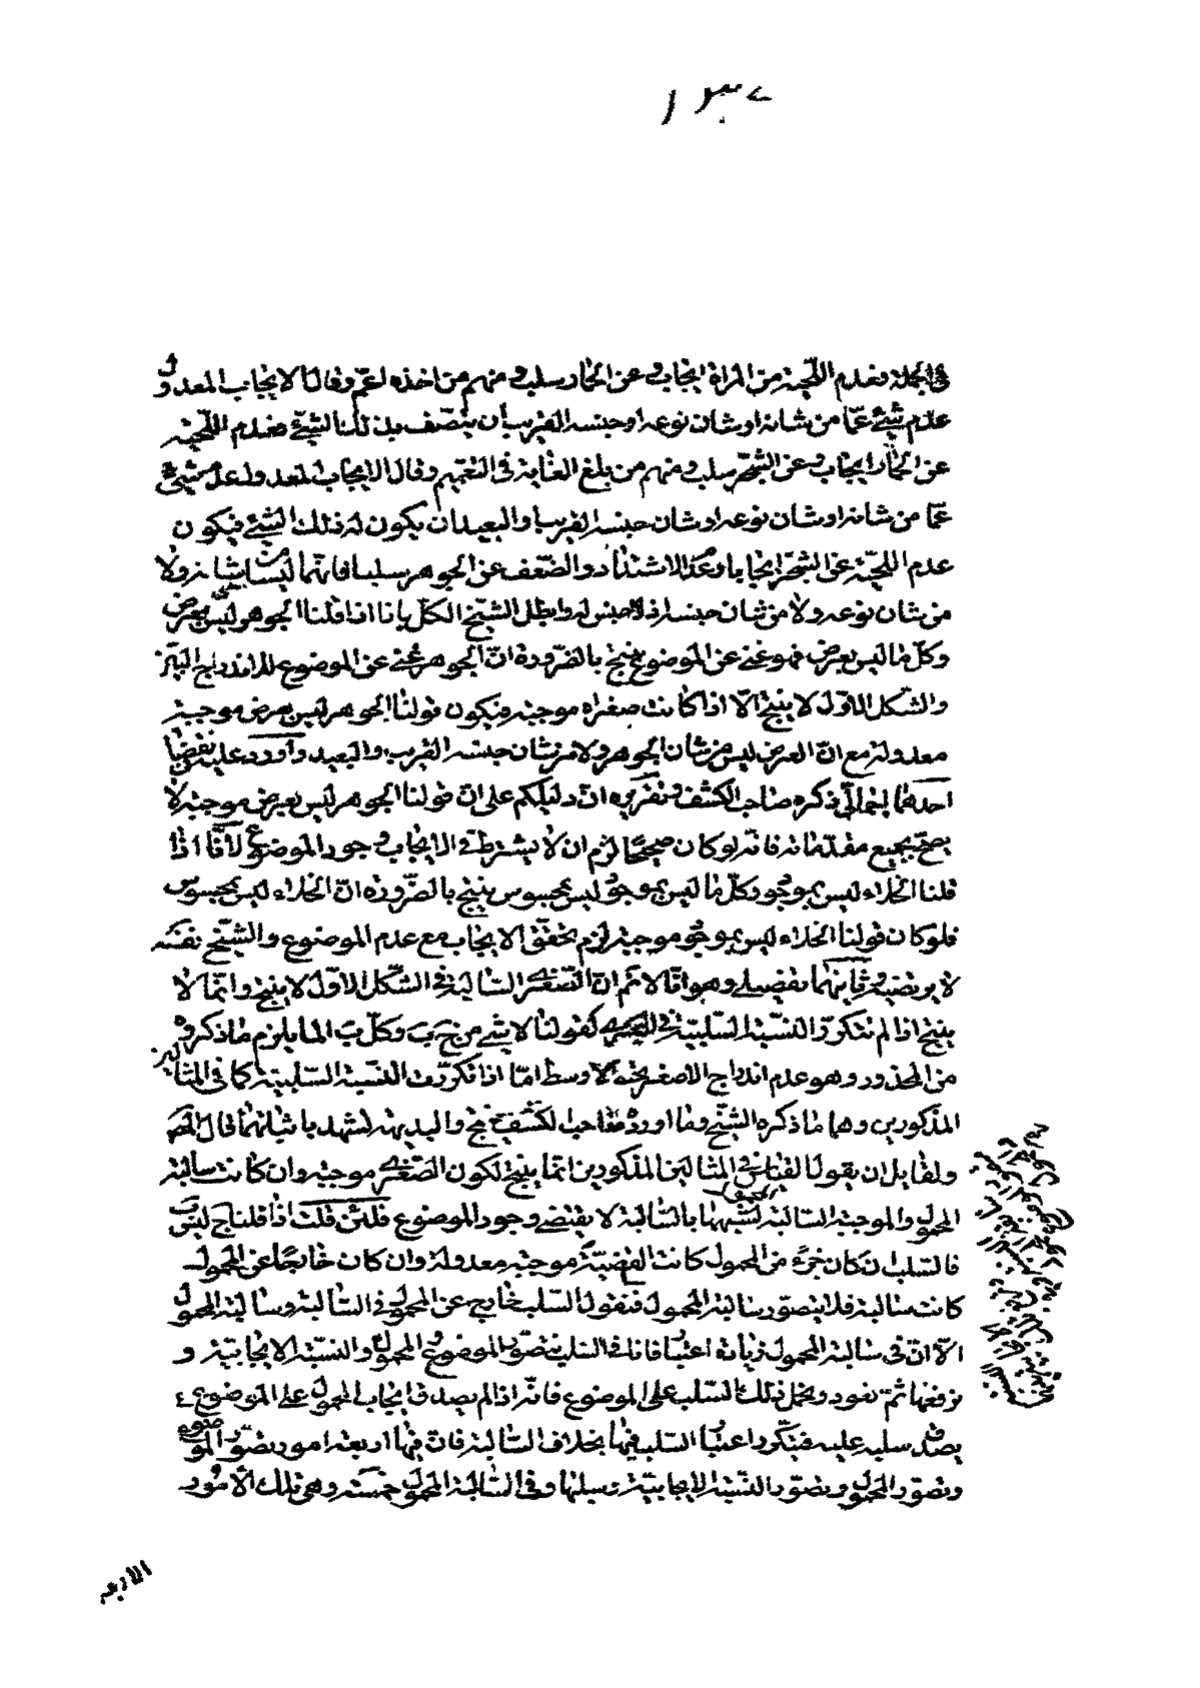 فى الجملة فعدم اللحية من المراة ايجاب و عن الحمار سلب و منهم من اخذه اعم و قال الايجاب المعدول
عدم شئ عما من شانه او شان نوعه او جنسه القريب ان يتصف بذلك الشئ فعدم اللحية
عن الحمار ايجاب و عن الشجر سلب و منهم من بلغ الغاية فى التعميم و قال الايجاب المعدول عدم شئ
عما من شانه او شان نوعه او شان جنسه القريب او البعيد ان يكون له ذلك الشئ فيكون
عدم اللحية عن الشجر ايجابا و عدم الاشتداد و الضعف عن الجوهر سلبا فانهما ليسا من شانه ولا
من شان نوعه ولا من شان جنسه اذ لا جنس له و ابطل الشيخ الكل بانا اذا قلنا الجوهر ليس بعرض
وكل ما ليس بعرض فهو غنى عن الموضوع ينتج بالضرورة ان الجوهر غنى عن الموضوع للاندراج البين
والشكل الاول لا ينتج الا اذا كانت صغراه موجبة فيكون قولنا الجوهر ليس بعرض موجبة
معدولة مع ان العرض ليس من شان الجوهر ولا من شان جنسه القريب والبعيد و اورد عليه نقضا
احدهما اجمالى ذكره صاحب الكشف و تقريره ان دليلكم على ان قولنا الجوهر ليس بعرض موجبة لا
يصح بجميع مقدماته فانه لو كان صحيحا لزم ان لا يشترط فى الايجاب وجود الموضوع لانا اذا
قلنا الخلاء ليس بموجود وكل ما ليس بموجود ليس بمحسوس ينتج بالضرورة ان الخلاء ليس بمحسوس
فلو كان قولنا الخلاء ليس بموجود موجبة لزم تحقق الايجاب مع عدم الموضوع والشيخ نفسه
لا يرتضيه و ثانيهما تفصيلى وهو انا لا نم ان الصغرى السالبة فى الشكل الاول لا ينتج و انما لا
ينتج اذا لم تتكرر النسبة السلبية فى الكبرى كقولنا لا شئ من ج ب وكل ب ا لما يلزم ما ذكروه
من المحذور وهو عدم اندراج الاصغر تحت الاوسط اما اذا تكررت النسبة السلبية كما فى المثالين
المذكورين وهما ما ذكره الشيخ وما اورده صاحب الكشف ينتج والبديهة تشهد بانتاجهما قال المصـ
ولقايل ان يقول القياس فى المثالين المذكورين انما ينتج لكون الصغرى موجبة وان كانت سالبة
المحمول والموجبة السالبة المحمول لشبهها بالسالبة لا يقتضى وجود الموضوع فلئن قلت اذا قلنا ج ليس ب
فالسلب ان كان جزء من المحمول كانت القضية موجبة معدولة وان كان خارجا عن المحمول
كانت سالبة فلا يتصور سالبة المحمول فنقول السلب خارج عن المحمول فى السالبة وسالبة المحمول
الا ان فى سالبة المحمول زيادة اعتبار فانا فى السلب نتصور الموضوع والمحمول والنسبة الايجابية و
نرفعها ثم نعود و نحمل ذلك السلب على الموضوع فانه اذا لم يصدق ايجاب المحمول على الموضوع
يصدق سلبه عليه فيتكرر اعتبار السلب فيها بخلاف السالبة فان فيها اربعة امور تصور الموضوع
وتصور المحمول و تصور النسبة الايجابية وسلبها وفى السالبة المحمول خمسة وهى تلك الامور
الاربعة